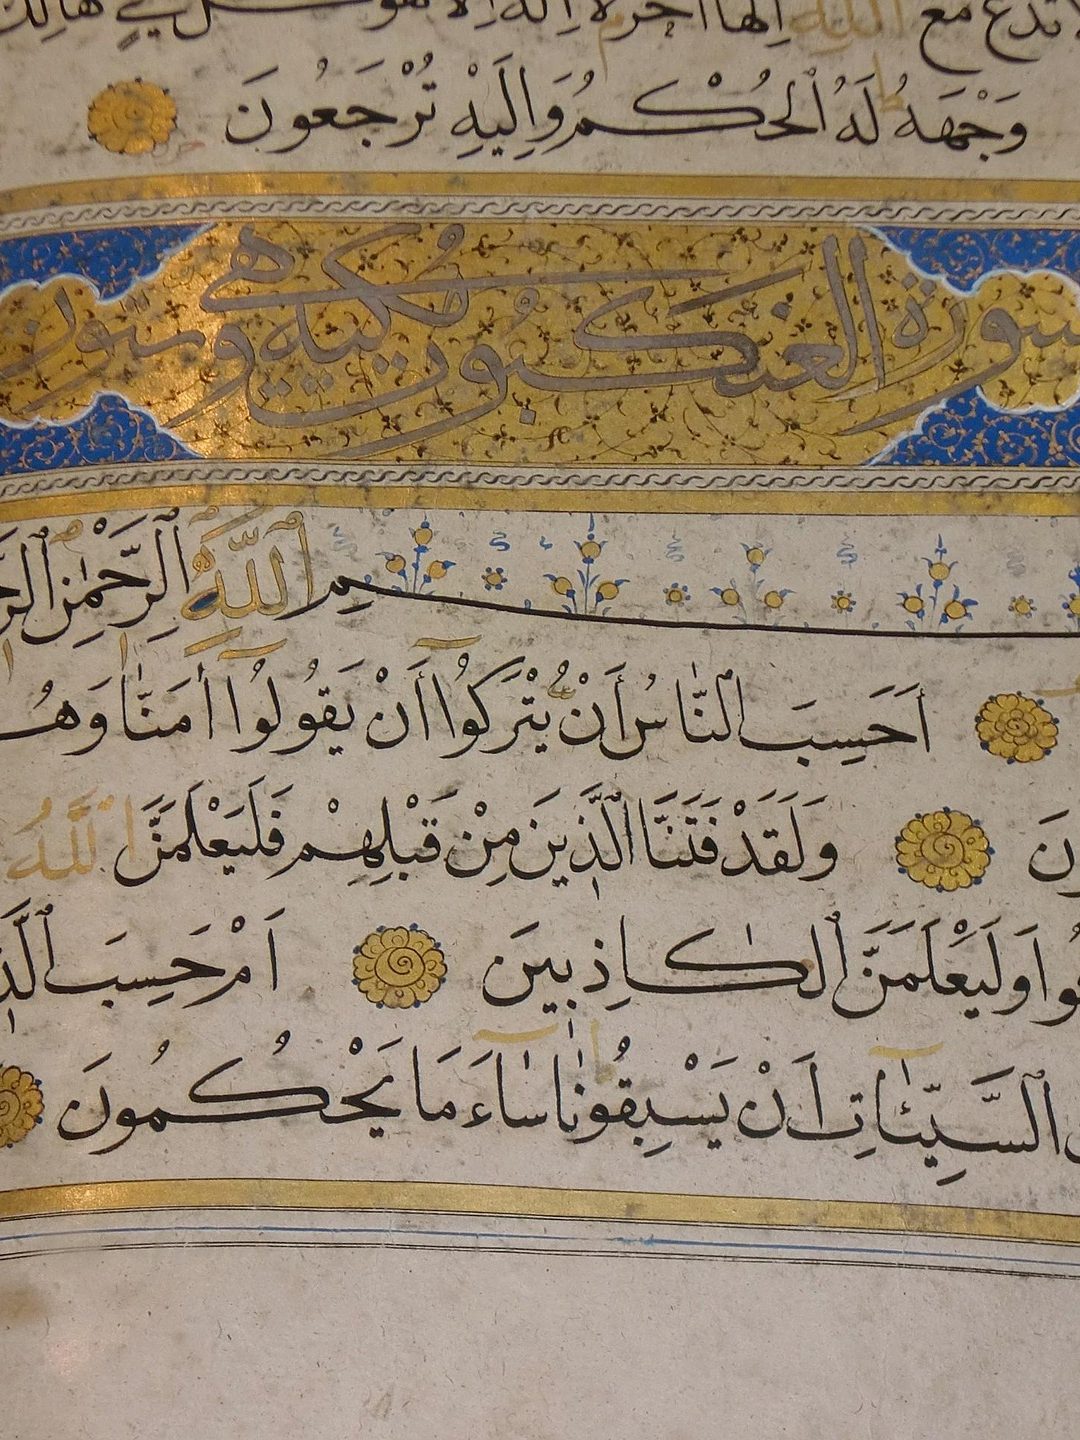 تدع مع الله إلها آخر لا إله إلا هو كل شيء هالك
وَجْهَهُ لَهُ ٱلْحُكْمُ وَإِلَيْهِ تُرْجَعُونَ
سورة العنكبوت مكية وهي وستون
بسم ٱللَّهِ ٱلرَّحْمَٰنِ ٱلرَّ
أَحَسِبَ ٱلنَّاسُ أَنْ يُتْرَكُوٓا أَنْ يَقُولُوٓا أَمَنَّا وَهُ
ونَ وَلَقَدْ فَتَنَّا ٱلَّذِينَ مِنْ قَبْلِهِمْ فَلَيَعْلَمَنَّ ٱللَّهُ
وا وَلَيَعْلَمَنَّ ٱلْكَاذِبِينَ أَمْ حَسِبَ ٱلَّذِ
ٱلسَّيِّـَٔاتِ أَنْ يَسْبِقُونَا سَآءَ مَا يَحْكُمُونَ